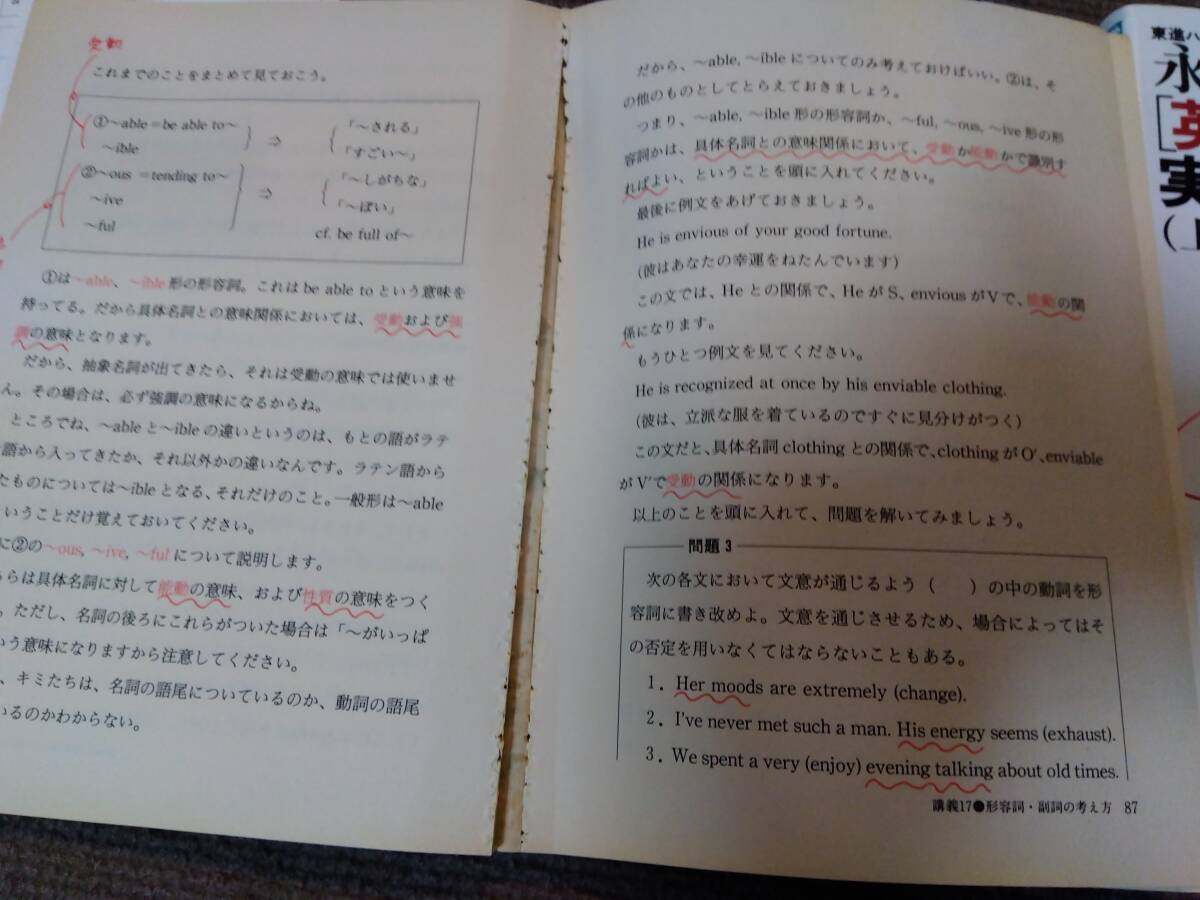 受動
これまでのことをまとめて見ておこう。
①～able＝be able to～ ⇒ 「～される」
～ible 「すごい～」
②～ous ＝tending to～ ⇒ 「～しがちな」
～ive 「～ぽい」
～ful cf. be full of～
①は～able、～ible形の形容詞。これはbe able toという意味を
持ってる。だから具体名詞との意味関係においては、受動および強
調の意味となります。
だから、抽象名詞が出てきたら、それは受動の意味では使いませ
ん。その場合は、必ず強調の意味になるからね。
ところでね、～ableと～ibleの違いというのは、もとの語がラテ
語から入ってきたか、それ以外かの違いなんです。ラテン語から
たものについては～ibleとなる、それだけのこと。一般形は～able
いうことだけ覚えておいてください。
に②の～ous, ～ive, ～fulについて説明します。
らは具体名詞に対して能動の意味、および性質の意味をつく
。ただし、名詞の後ろにこれらがついた場合は「～がいっぱ
いう意味になりますから注意してください。
、キミたちは、名詞の語尾についているのか、動詞の語尾
いるのかわからない。
だから、～able, ～ibleについてのみ考えておけばいい。②は、そ
の他のものとしてとらえておきましょう。
つまり、～able, ～ible形の形容詞か、～ful, ～ous, ～ive形の形
容詞かは、具体名詞との意味関係において、受動か能動かで識別す
ればよい、ということを頭に入れてください。
最後に例文をあげておきましょう。
He is envious of your good fortune.
(彼はあなたの幸運をねたんでいます)
この文では、Heとの関係で、HeがS、enviousがVで、能動の関
係になります。
もうひとつ例文を見てください。
He is recognized at once by his enviable clothing.
(彼は、立派な服を着ているのですぐに見分けがつく)
この文だと、具体名詞clothingとの関係で、clothingがO′、enviable
がV′で受動の関係になります。
以上のことを頭に入れて、問題を解いてみましょう。
問題3
次の各文において文意が通じるよう（　　）の中の動詞を形
容詞に書き改めよ。文意を通じさせるため、場合によってはそ
の否定を用いなくてはならないこともある。
1. Her moods are extremely (change).
2. I've never met such a man. His energy seems (exhaust).
3. We spent a very (enjoy) evening talking about old times.
講義17●形容詞・副詞の考え方 87
東進ハ
永
[英
実
(上